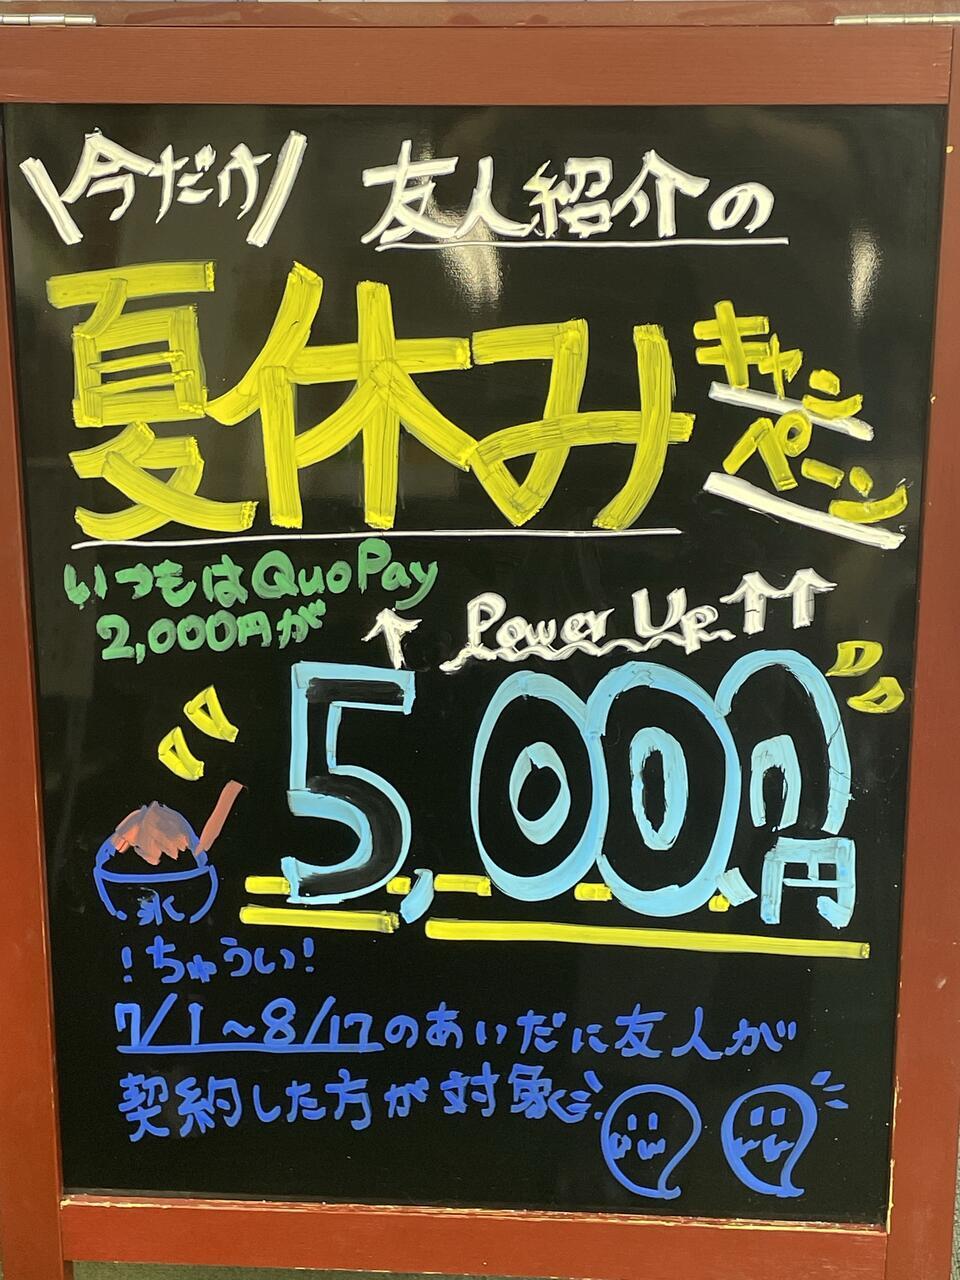 \今だけ/ 友人紹介の
夏休みキャンペーン
いつもはQuoPay
2,000円が
↑ Power Up↑↑
5,000円
氷
!ちゅうい!
7/1~8/17のあいだに友人が
契約した方が対象